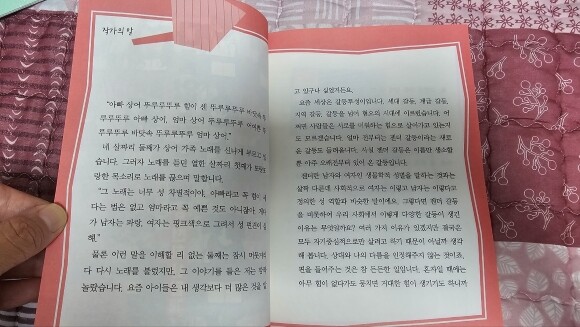 작가의 말
"아빠 상어 뚜루루뚜루 힘이 센 뚜루루뚜루 바닷속
뚜루루뚜루 아빠 상어, 엄마 상어 뚜루루뚜루 어여쁜
루루뚜루 바닷속 뚜루루뚜루 엄마 상어."
내 삼짜리 둘째가 상어 가족 노래를 신나게 부르고 있
습니다. 그러자 노래를 듣던 열한 살짜리 첫째가
랑한 목소리로 노래를 끊으며 말합니다.
"그 노래는 너무 성 차별적이야. 아빠라고 꼭 힘이 세
다는 법은 없고 엄마라고 꼭 예쁜 것도 아니잖아. 게다
가 남자는 파랑, 여자는 핑크색으로 그려서 성 편견이
해."
물론 이런 말을 이해할 리 없는 둘째는 잠시 머뭇거리
다 다시 노래를 불렀지만, 그 이야기를 들은 저는 깜짝
놀랐습니다. 요즘 아이들은 내 생각보다 더 많은 것을 알
고 있구나 싶었거든요.
요즘 세상은 갈등투성이입니다. 세대 갈등, 계급 갈등,
지역 갈등, 갈등을 넘어 혐오의 시대에 이르렀습니다. 어
쩌면 사람들은 서로를 미워하는 힘으로 살아가고 있는지
도 모르겠습니다. 얼마 전부터는 젠더 갈등이라는 새로
운 갈등도 들려옵니다. 사실 젠더 갈등은 이름만 생소할
뿐 아주 오래전부터 있어 온 갈등입니다.
젠더란 남자와 여자의 생물학적 성별을 말하는 것과는
살짝 다른데 사회적으로 여자는 이렇고 남자는 이렇다고
정의한 성 역할과 비슷한 말이에요. 그렇다면 젠더 갈등
을 비롯하여 우리 사회에서 이렇게 다양한 갈등이 생긴
이유는 무엇일까요? 여러 가지 이유가 있겠지만 결국은
모두 자기중심적으로만 살려고 하기 때문이 아닐까 생각
해 봅니다. 상대와 나의 다름을 인정해주지 않는 것이죠.
편을 들어주는 것은 참 든든한 일입니다. 혼자일 때에는
아무 힘이 없다가도 뭉치면 거대한 힘이 생기기도 하니까